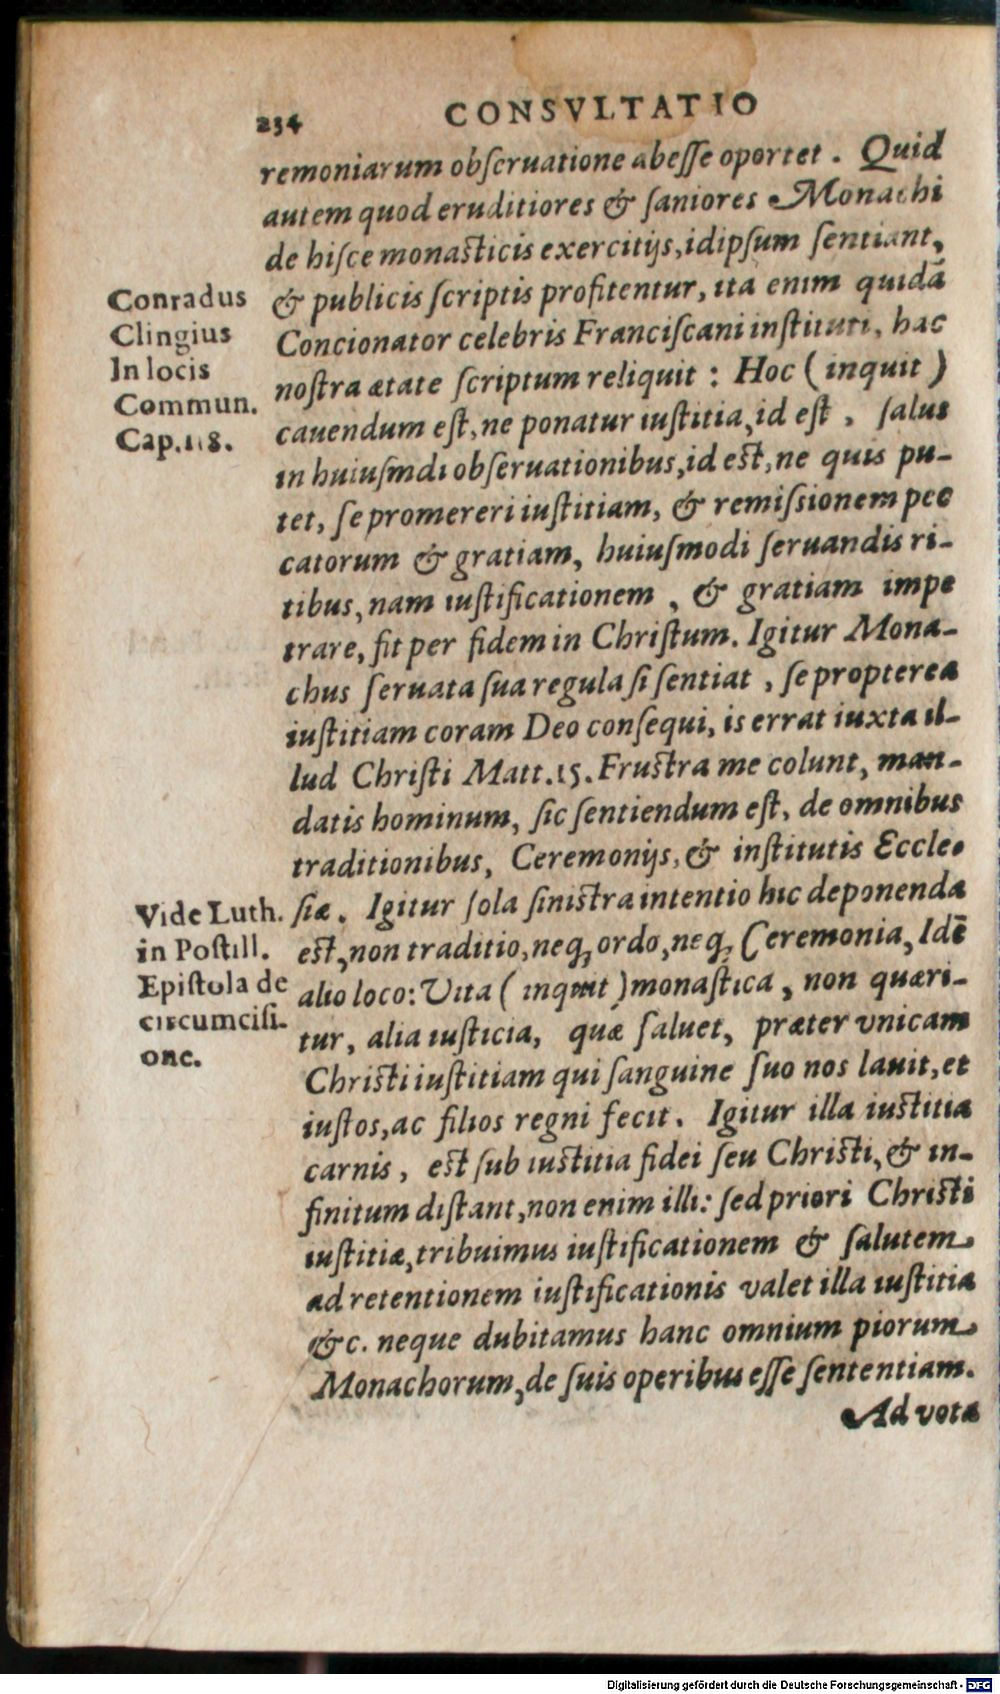 234 CONSVLTATIO
remoniarum obseruatione abesse oportet. Quid
autem quod eruditiores & saniores Monachi
de hisce monasticis exercitijs, idipsum sentiant,
& publicis scriptis profitentur, ita enim quidā
Concionator celebris Franciscani instituti, hac
nostra ætate scriptum reliquit: Hoc (inquit)
cauendum est, ne ponatur iustitia, id est, salus
in huiusmdi obseruationibus, id est, ne quis pu-
tet, se promereri iustitiam, & remissionem pec
catorum & gratiam, huiusmodi seruandis ri-
tibus, nam iustificationem, & gratiam impe
trare, fit per fidem in Christum. Igitur Mona-
chus seruata sua regula si sentiat, se propterea
iustitiam coram Deo consequi, is errat iuxta il-
lud Christi Matt. 15. Frustra me colunt, man-
datis hominum, sic sentiendum est, de omnibus
traditionibus, Ceremonijs, & institutis Eccle-
siæ. Igitur sola sinistra intentio hic deponenda
est, non traditio, neq; ordo, neq; Ceremonia, Idē
alio loco: Vita (inquit) monastica, non quæri-
tur, alia iusticia, quæ saluet, præter vnicam
Christi iustitiam qui sanguine suo nos lauit, et
iustos, ac filios regni fecit. Igitur illa iustitia
carnis, est sub iustitia fidei seu Christi, & in-
finitum distant, non enim illi: sed priori Christi
iustitiæ, tribuimus iustificationem & salutem
ad retentionem iustificationis valet illa iustitia
&c. neque dubitamus hanc omnium piorum
Monachorum, de suis operibus esse sententiam.
Ad vota
Conradus
Clingius
In locis
Commun.
Cap. 118.
Vide Luth.
in Postill.
Epistola de
circumcisi-
one.
Digitalisierung gefördert durch die Deutsche Forschungsgemeinschaft - DFG